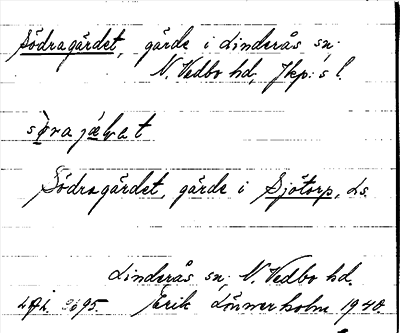 Södragärdet, gärde i Linderås sn.
N. Vedbo hd, Jkp:s l.
Södragärdet, gärde i Sjötorp, Ls
Linderås sn. N. Vedbo hd.
Erik Lönnerholm 1940.